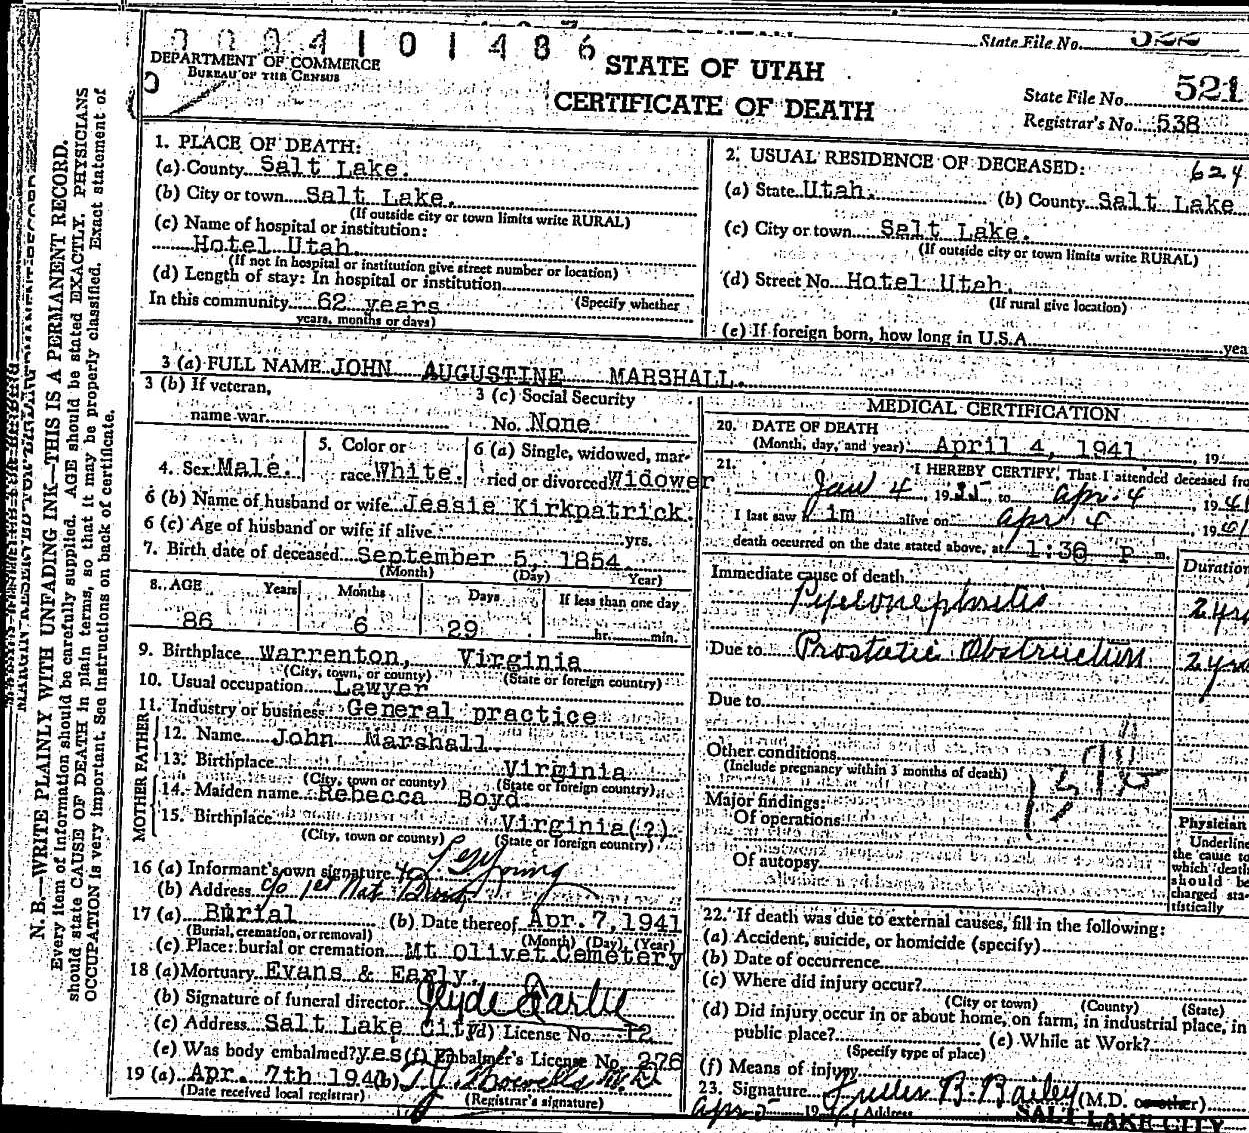 0004101486
State File No. 522
DEPARTMENT OF COMMERCE
BUREAU OF THE CENSUS
STATE OF UTAH
CERTIFICATE OF DEATH
State File No. 521
Registrar's No. 538
N. B.—WRITE PLAINLY WITH UNFADING INK—THIS IS A PERMANENT RECORD.
Every item of information should be carefully supplied. AGE should be stated EXACTLY. PHYSICIANS
should state CAUSE OF DEATH in plain terms, so that it may be properly classified. Exact statement of
OCCUPATION is very important. See instructions on back of certificate.
1. PLACE OF DEATH:
(a) County Salt Lake.
(b) City or town Salt Lake.
(If outside city or town limits write RURAL)
(c) Name of hospital or institution:
Hotel Utah
(If not in hospital or institution give street number or location)
(d) Length of stay: In hospital or institution
(Specify whether
In this community 62 years
years, months or days)
2. USUAL RESIDENCE OF DECEASED: 624
(a) State Utah. (b) County Salt Lake
(c) City or town Salt Lake.
(If outside city or town limits write RURAL)
(d) Street No. Hotel Utah.
(If rural give location)
(e) If foreign born, how long in U.S.A. yea
3 (a) FULL NAME JOHN AUGUSTINE MARSHALL.
3 (b) If veteran,
name war
3 (c) Social Security
No. None
4. Sex Male.
5. Color or
race White.
6 (a) Single, widowed, mar-
ried or divorced Widower
6 (b) Name of husband or wife Jessie Kirkpatrick.
6 (c) Age of husband or wife if alive yrs.
7. Birth date of deceased September 5, 1854
(Month) (Day) Year)
8. AGE Years Months Days If less than one day
86 6 29 hr. min.
9. Birthplace Warrenton, Virginia
(City, town, or county) (State or foreign country)
10. Usual occupation Lawyer
11. Industry or business General practice
FATHER
12. Name John Marshall.
13. Birthplace Virginia
(City, town or county) (State or foreign country)
MOTHER
14. Maiden name Rebecca Boyd
15. Birthplace Virginia(?)
(City, town or county) (State or foreign country)
16 (a) Informant's own signature Young
(b) Address c/o 1st Nat. Bank
17 (a) Burial (b) Date thereof Apr. 7, 1941
(Burial, cremation, or removal) (Month) (Day) (Year)
(c) Place: burial or cremation Mt Olivet Cemetery
18 (a) Mortuary Evans & Early.
(b) Signature of funeral director Clyde Earlie
(c) Address Salt Lake City (d) License No. 12
(e) Was body embalmed? yes (f) Embalmer's License No. 276
19 (a) Apr. 7th 1941 (b)
(Date received local registrar) (Registrar's signature)
MEDICAL CERTIFICATION
20. DATE OF DEATH
(Month, day, and year) April 4, 1941, 19
21. I HEREBY CERTIFY, That I attended deceased fro
Jan 4, 1935, to Apr. 4, 1941
I last saw him alive on Apr 4 1941
death occurred on the date stated above, at 1:36 P m.
Duration
Immediate cause of death
Pyelonephritis 2 yrs
Due to Prostatic Obstruction 2 yrs
Due to
Other conditions
(Include pregnancy within 3 months of death)
Major findings:
Of operations
Of autopsy
Physician
Underline
the cause to
which death
should be
charged sta-
tistically
22. If death was due to external causes, fill in the following:
(a) Accident, suicide, or homicide (specify)
(b) Date of occurrence
(c) Where did injury occur?
(City or town) (County) (State)
(d) Did injury occur in or about home, on farm, in industrial place, in
public place? (e) While at Work?
(Specify type of place)
(f) Means of injury
23. Signature Fuller B. Bailey (M.D. or other)
Apr 5 1941 Address SALT LAKE CITY